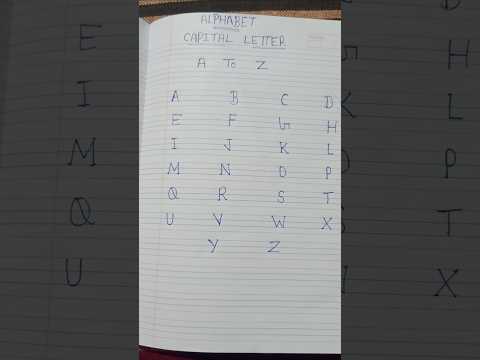 ALPHABET
CAPITAL LETTER
A TO Z
A B C D
E F G H
I J K L
M N O P
Q R S T
U V W X
Y Z